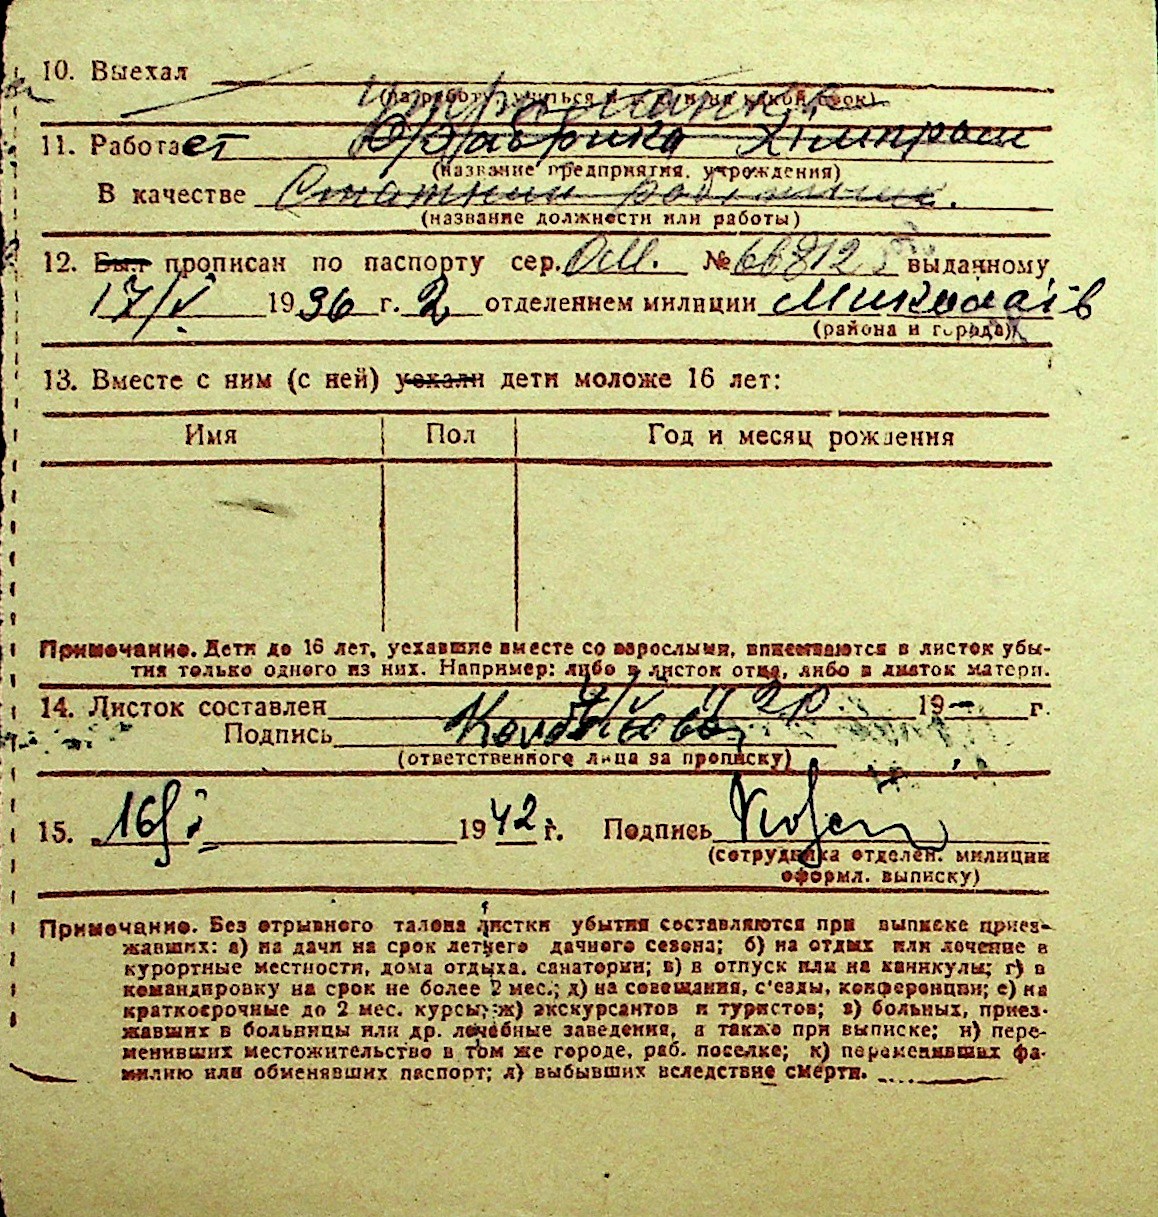 10. Выехал
(на работу, учиться и т. п. и на какой срок)
11. Работает Фабрика Хімпром
(название предприятия, учреждения)
В качестве
(название должности или работы)
12. Был прописан по паспорту сер. ОМ. № 668125 выданному
17/V 1936 г. 2 отделением милиции Миколаїв
(района и города)
13. Вместе с ним (с ней) уехали дети моложе 16 лет:
Имя Пол Год и месяц рождения
Примечание. Дети до 16 лет, уехавшие вместе со взрослыми, вписываются в листок убы-
тия только одного из них. Например: либо в листок отца, либо в листок матери.
14. Листок составлен 19 г.
Подпись
(ответственного лица за прописку)
15. 16/I 1942 г. Подпись
(сотрудника отделен. милиции
оформл. выписку)
Примечание. Без отрывного талона листки убытия составляются при выписке приез-
жавших: а) на дачи на срок летнего дачного сезона; б) на отдых или лечение в
курортные местности, дома отдыха, санатории; в) в отпуск или на каникулы; г) в
командировку на срок не более 2 мес.; д) на совещания, с'езды, конференции; е) на
краткосрочные до 2 мес. курсы; ж) экскурсантов и туристов; з) больных, приез-
жавших в больницы или др. лечебные заведения, а также при выписке; и) пере-
менивших местожительство в том же городе, раб. поселке; к) переменивших фа-
милию или обменявших паспорт; л) выбывших вследствие смерти.